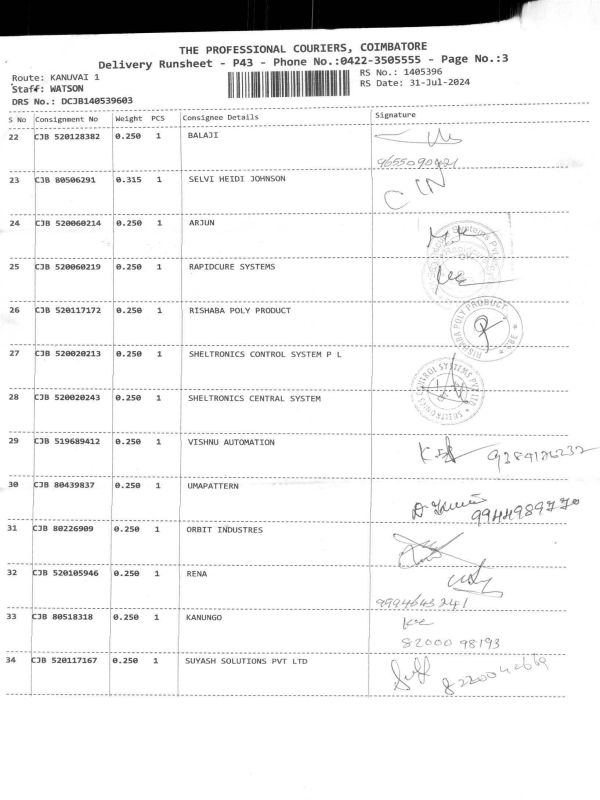 THE PROFESSIONAL COURIERS, COIMBATORE
Delivery Runsheet - P43 - Phone No.:0422-3505555 - Page No.:3
Route: KANUVAI 1
RS No.: 1405396
Staff: WATSON
RS Date: 31-Jul-2024
DRS No.: DCJB140539603
S No Consignment No Weight PCS Consignee Details Signature
22 CJB 520128382 0.250 1 BALAJI
9655090921
23 CJB 80506291 0.315 1 SELVI HEIDI JOHNSON
24 CJB 520060214 0.250 1 ARJUN
25 CJB 520060219 0.250 1 RAPIDCURE SYSTEMS
26 CJB 520117172 0.250 1 RISHABA POLY PRODUCT
RISHABA POLY PRODUCT
27 CJB 520020213 0.250 1 SHELTRONICS CONTROL SYSTEM P L
SHELTRONICS CONTROL SYSTEMS PVT LTD
28 CJB 520020243 0.250 1 SHELTRONICS CENTRAL SYSTEM
29 CJB 519689412 0.250 1 VISHNU AUTOMATION
30 CJB 80439837 0.250 1 UMAPATTERN
9944989770
31 CJB 80226909 0.250 1 ORBIT INDUSTRES
32 CJB 520105946 0.250 1 RENA
9994643241
33 CJB 80518318 0.250 1 KANUNGO
82000 98193
34 CJB 520117167 0.250 1 SUYASH SOLUTIONS PVT LTD